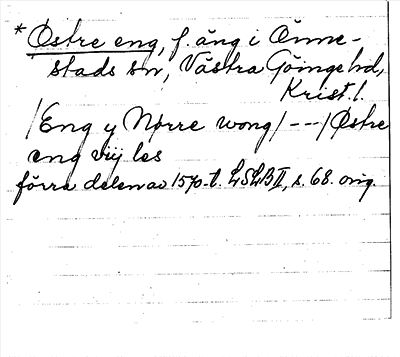 * Östre eng, f. äng i Önne-
stads sn, Västra Göinge hd,
Krist. l.
/Eng y Nørre wong/ - - / Østre
eng viij les
förra delen av 1570-t. LSLB II, s. 68. orig.